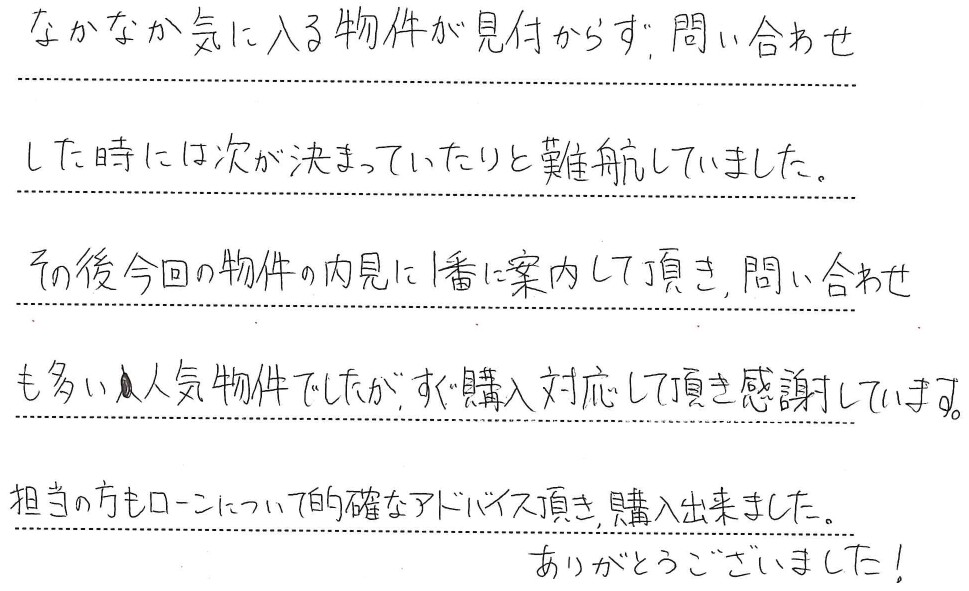 なかなか気に入る物件が見付からず、問い合わせ
した時には次が決まっていたりと難航していました。
その後今回の物件の内見に1番に案内して頂き、問い合わせ
も多い人気物件でしたが、すぐ購入対応して頂き感謝しています。
担当の方もローンについて的確なアドバイス頂き、購入出来ました。
ありがとうございました!